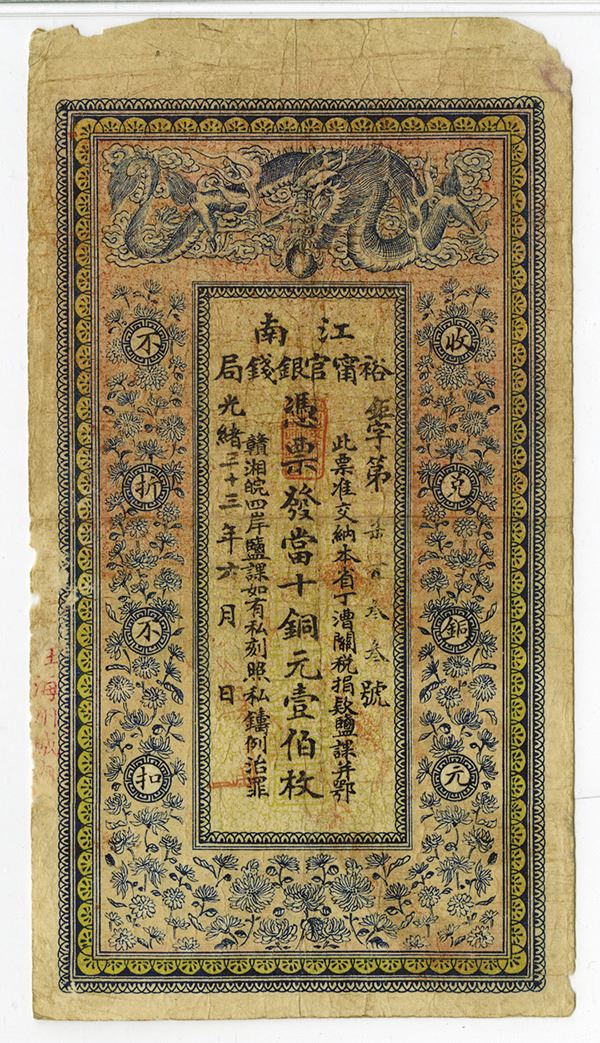 江南
裕甯官銀錢局
字第 叁叁號
此票准交納本省丁漕關稅捐款鹽課并鄂
憑票發當十銅元壹佰枚
贛湘皖四岸鹽課如有私刻照私鑄例治罪
光緒三十三年六月 日
收兌銅元
不折不扣
上海